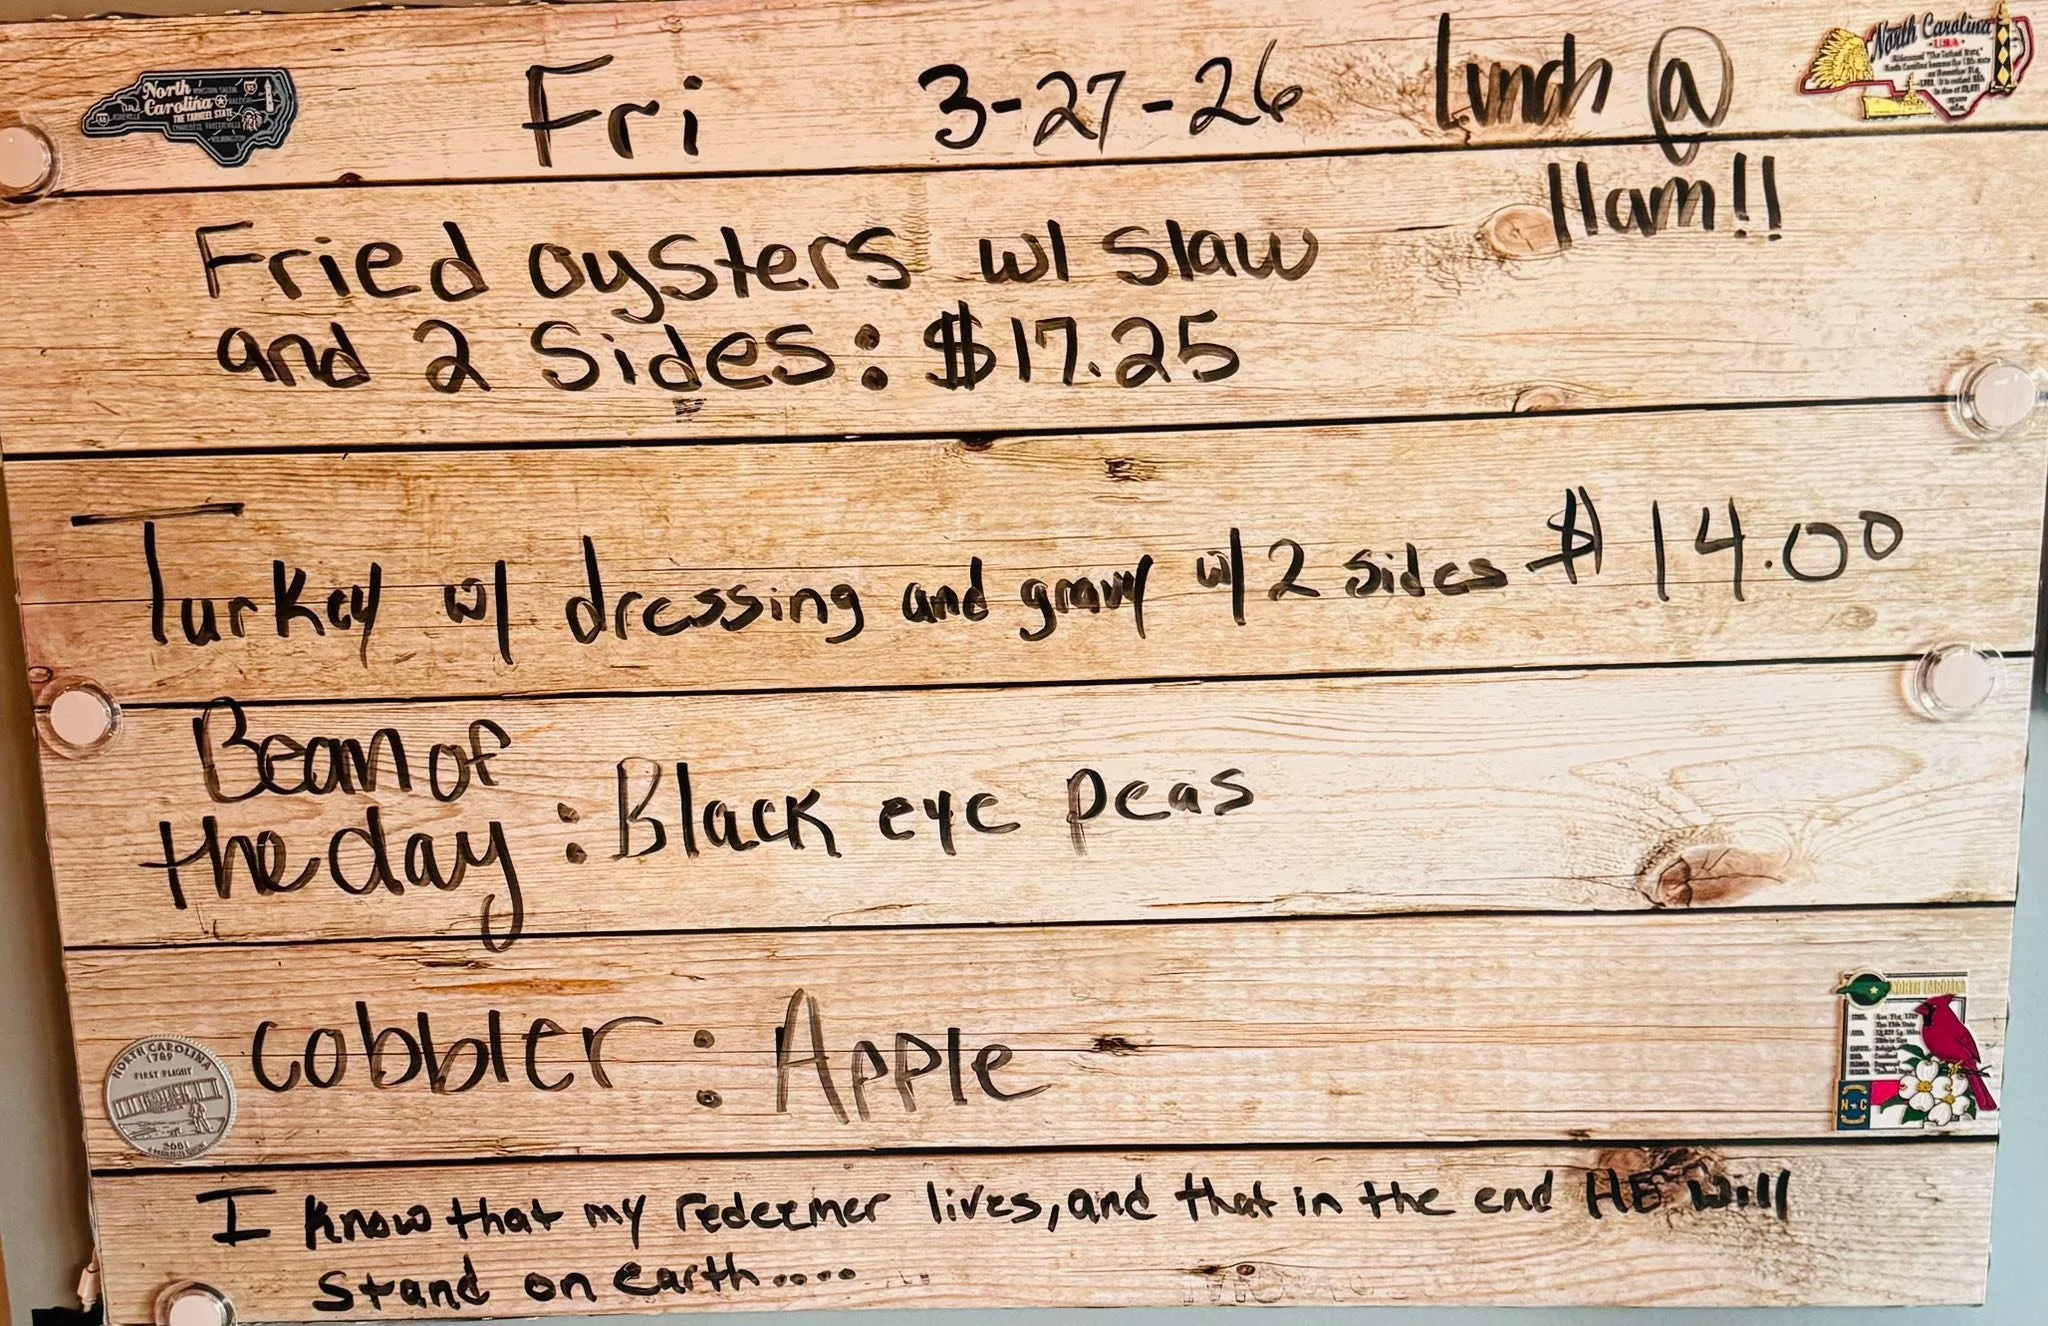 Fri 3-27-26 Lunch @
11am!!
Fried oysters w/ slaw
and 2 Sides: $17.25
Turkey w/ dressing and gravy w/ 2 sides $14.00
Bean of
the day : Black eye peas
Cobbler : Apple
I know that my redeemer lives, and that in the end HE will
stand on earth....
North
Carolina
THE TARHEEL STATE
WINSTON SALEM
RALEIGH
ASHEVILLE
North Carolina
USA
NORTH CAROLINA
1789
FIRST FLIGHT
2001
NORTH CAROLINA
N C